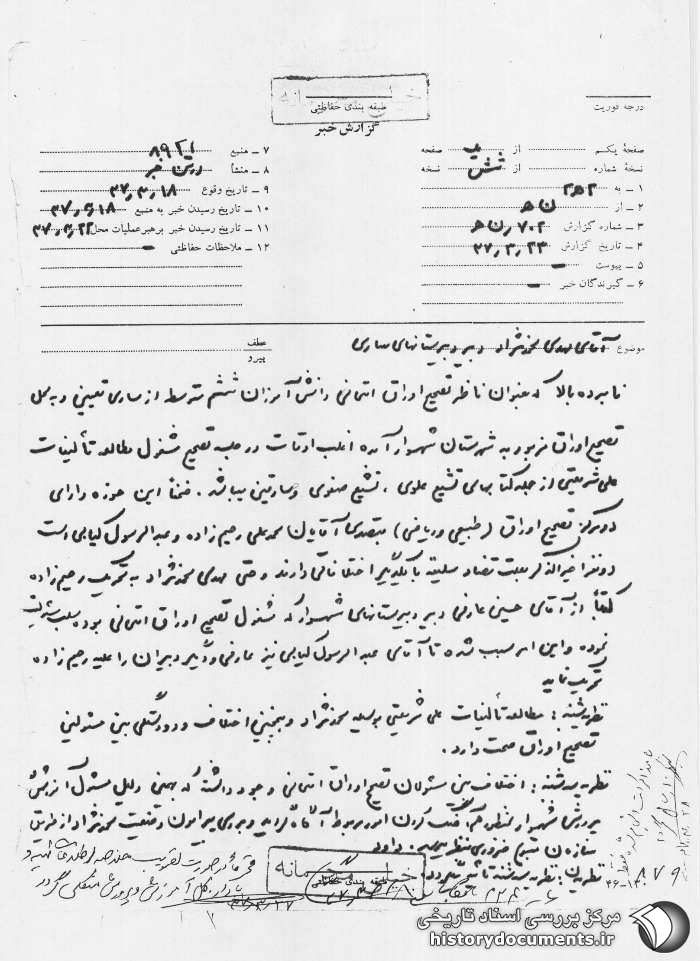 خیلی محرمانه
طبقه بندی حفاظتی
گزارش خبر
درجه فوریت
صفحهٔ یکم از صفحه
نسخهٔ شماره از شش نسخه
۱ ـ به ۳ ﻫ ۲
۲ ـ از ن ﻫ
۳ ـ شماره گزارش ۷۰۲ / ن ﻫ
۴ ـ تاریخ گزارش ۳۷,۳,۲۳
۵ ـ پیوست —
۶ ـ گیرندگان خبر —
۷ ـ منبع ۸۹۲۱
۸ ـ منشأ خبر
۹ ـ تاریخ وقوع ۳۷,۳,۱۸
۱۰ ـ تاریخ رسیدن خبر به منبع ۳۷,۳,۱۸
۱۱ ـ تاریخ رسیدن خبر برهبرعملیات محل ۳۷,۳,۲۲
۱۲ ـ ملاحظات حفاظتی —
موضوع آقای مهدی محمدنژاد دبیر دبیرستانهای ساری
عطف
پیرو
نامبرده بالا که بعنوان ناظر تصحیح اوراق امتحانی دانش آموزان ششم متوسطه از ساری تعیین و به محل
تصحیح اوراق مزبور به شهرستان شهسوار آمده اغلب اوقات در جلسه تصحیح مشغول مطالعه تألیفات
علی شریعتی از جمله کتابهای تشیع علوی ، تشیع صفوی و سارتین میباشد . ضمناً این حوزه دارای
دو مرکز تصحیح اوراق (طبیعی و ریاضی) بتصدی آقایان محمدعلی رحیم زاده و عبدالرسول کیابی است
دو نفر اخیرالذکر بعلت تضاد سلیقه با یکدیگر اختلافاتی دارند و حتی مهدی محمدنژاد به تحریک رحیم زاده
کتباً از آقای حسینی عارفی دبیر دبیرستانهای شهسوار که مشغول تصحیح اوراق امتحانی بوده سلب مسئولیت
نموده و این امر سبب شده تا آقای عبدالرسول کیابی نیز عارفی و دیگر دبیران را علیه رحیم زاده
تحریک نماید
نظریه شنبه : مطالعه تألیفات علی شریعتی بوسیله محمدنژاد و همچنین اختلاف و دودستگی بین مسئولین
تصحیح اوراق صحت دارد .
نظریه سه شنبه : اختلاف بین مسئولان تصحیح اوراق امتحانی وجود داشته که بهمین دلیل مسئول آموزش و
پرورش شهسوار بمنظور هم آهنگ کردن امور مربوط آگاه گردید و بررسی پیرامون وضعیت محمدنژاد از طریق
سازمان متبوع ضروری بنظر میرسد.
نظریه شنبه تأیید میگردد.
خیلی محرمانه
طبقه بندی حفاظتی
۳۷/۳/۲۷
۸۷۹
مرکز بررسی اسناد تاریخی
historydocuments.ir